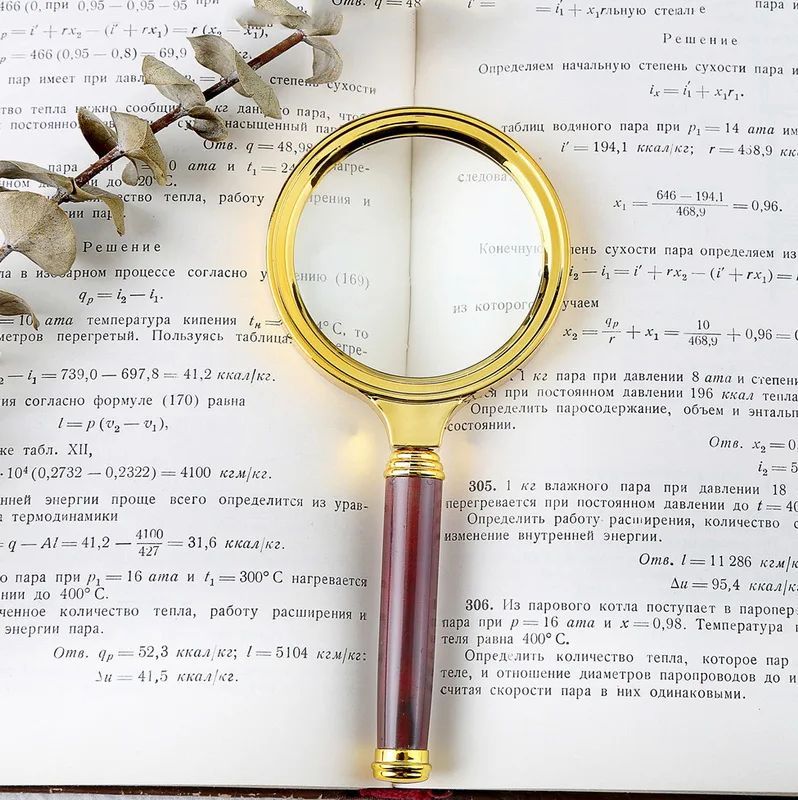 466 (0, при 0,95 — 0,95 · 95 при
p = i′ + rx₂ — (i′ + rx₁) = r (x₂ — x₁),
p = 466 (0,95 — 0,8) = 69,9
пар имеет при давл степень сухости
тво тепла нужно сообщи кг данного пара, чтоб
постоянно су насыщенный пар
Отв. q = 48,98
пара 0 ата и t₁ = 2 нагре-
ном до 20° C.
ство тепла, работу рения и
гии пар
Решение
ла в изобарном процессе согласно у ению (169)
qₚ = i₂ — i₁.
= 10 ата температура кипения tₙ = 4° C, то
метров перегретый. Пользуясь таблица егре-
₂ — i₁ = 739,0 — 697,8 = 41,2 ккал/кг.
ия согласно формуле (170) равна
l = p (v₂ — v₁),
же табл. XII,
· 10⁴ (0,2732 — 0,2322) = 4100 кгм/кг.
нней энергии проще всего определится из урав-
термодинамики
= q — Al = 41,2 — 4100/427 = 31,6 ккал/кг.
о пара при p₁ = 16 ата и t₁ = 300° C нагревается
нии до 400° C.
ченное количество тепла, работу расширения и
энергии пара.
Отв. qₚ = 52,3 ккал/кг; l = 5104 кгм/кг;
Δu = 41,5 ккал/кг.
Отв. q = 48
= i₁ + x₁r
льную степень пара и
Решение
Определяем начальную степень сухости пара и
iₓ = i′₁ + x₁r₁.
таблиц водяного пара при p₁ = 14 ата им
i′ = 194,1 ккал/кг; r = 468,9 кк
следова
x₁ = 646 — 194,1/468,9 = 0,96.
Конечную пень сухости пара определяем из
i₂ — i₁ = i′ + rx₂ — (i′ + rx₁) =
из которого учаем
x₂ = qₚ/r + x₁ = 10/468,9 + 0,96 = 0
1 кг пара при давлении 8 ата и степени
ся при постоянном давлении 196 ккал тепла
Определить паросодержание, объем и энтальп
состоянии.
Отв. x₂ = 0,
i₂ = 5
305. 1 кг влажного пара при давлении 18
перегревается при постоянном давлении до t = 40
Определить работу расширения, количество с
изменение внутренней энергии.
Отв. l = 11 286 кгм/к
Δu = 95,4 ккал/кг
306. Из парового котла поступает в паропер
пара при p = 16 ата и x = 0,98. Температура
теля равна 400° C.
Определить количество тепла, которое пар
теле, и отношение диаметров паропроводов до и
считая скорости пара в них одинаковыми.